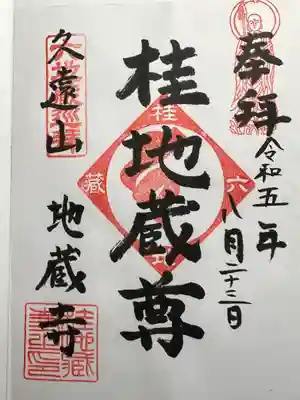 奉拝
令和五年
八月二十三日
桂地蔵尊
久遠山
地蔵寺
桂
六
蔵